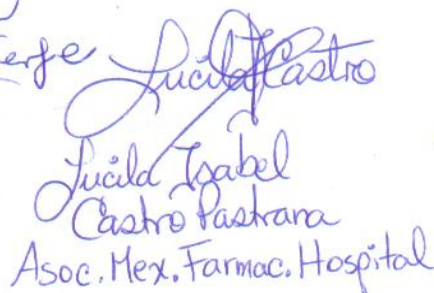 Lucila Castro
Lucila Isabel
Castro Pastrana
Asoc. Mex. Farmac. Hospital